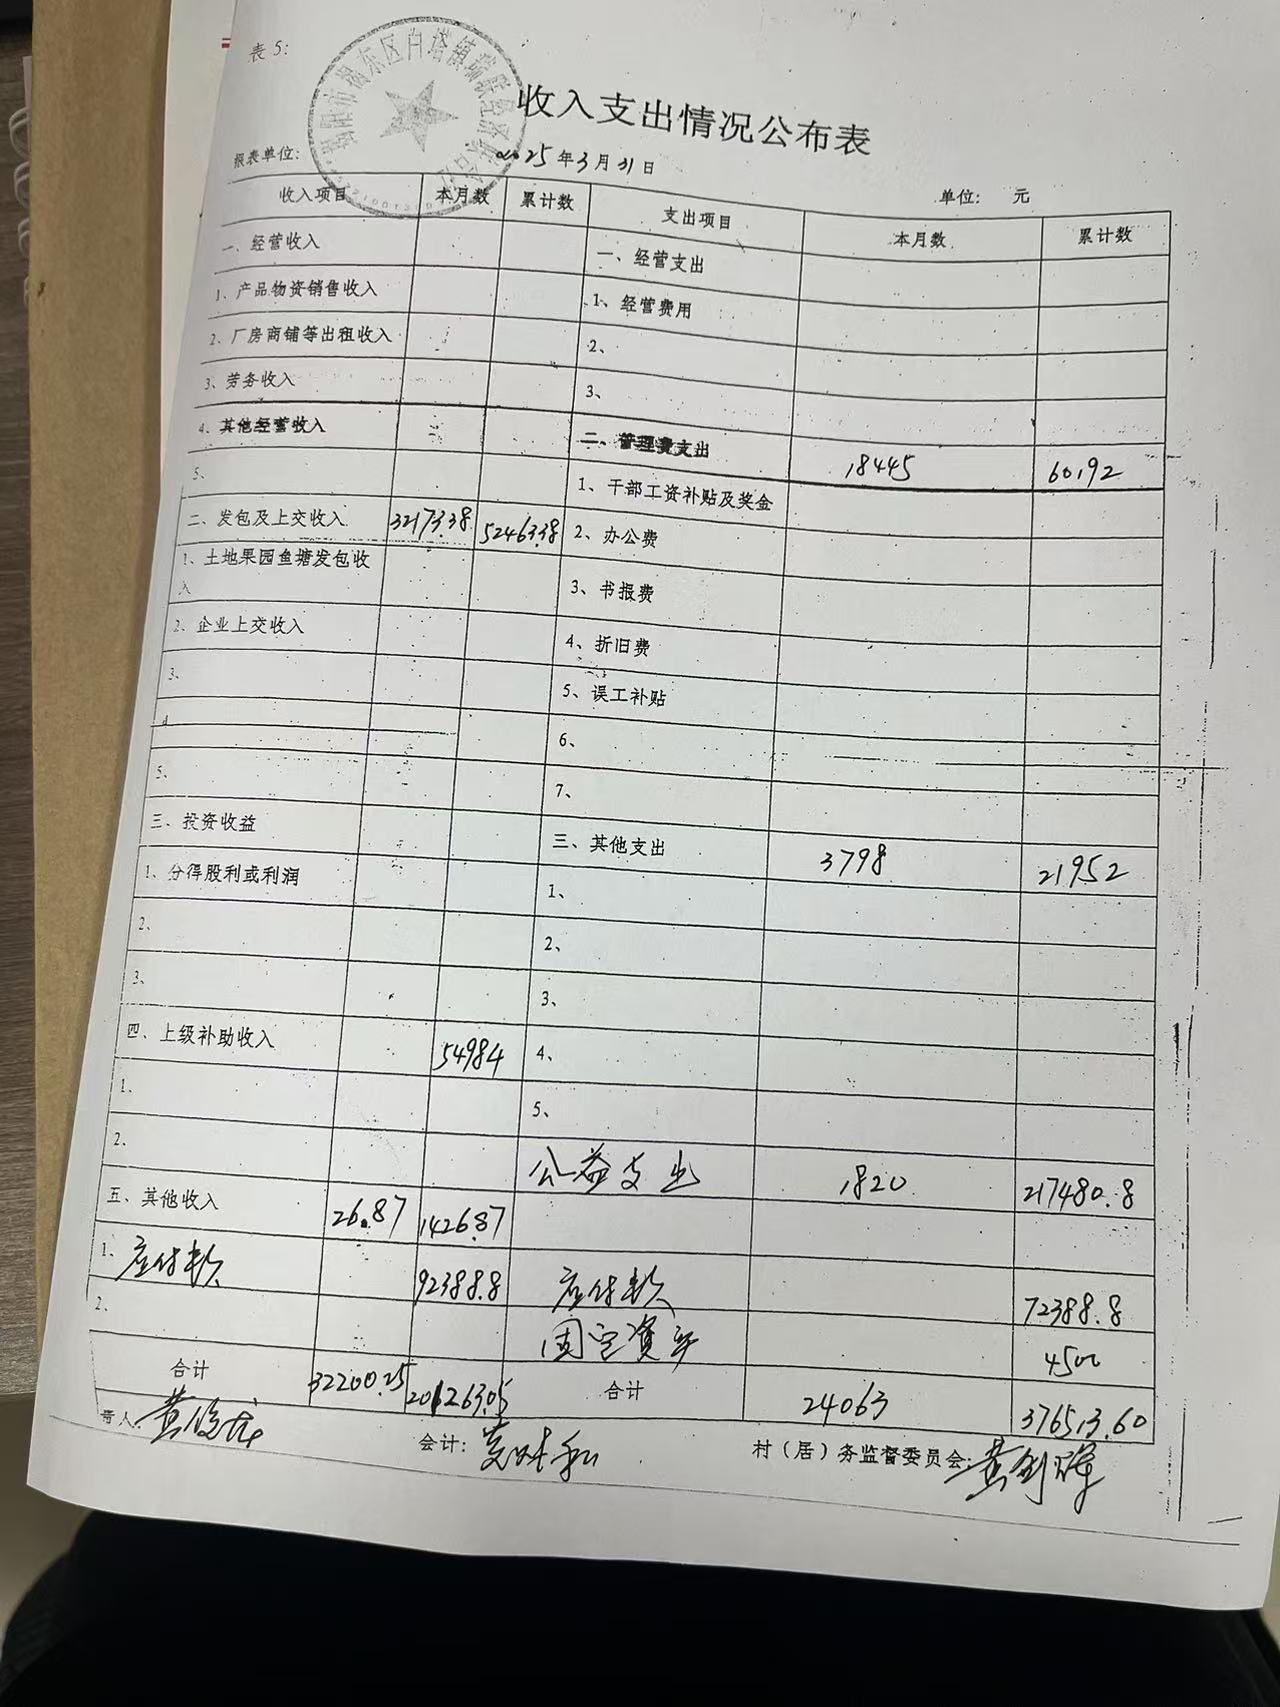 表 5:
揭阳市揭东区白塔镇瑞联经济联合社
收入支出情况公布表
报表单位: 2025 年 3 月 31 日 单位: 元
收入项目 本月数 累计数 支出项目 本月数 累计数
一、经营收入 一、经营支出
1、产品物资销售收入 1、经营费用
2、厂房商铺等出租收入 2、
3、劳务收入 3、
4、其他经营收入 二、管理费支出 18445 60192
5、 1、干部工资补贴及奖金
二、发包及上交收入 32173.38 52463.38 2、办公费
1、土地果园鱼塘发包收入 3、书报费
2、企业上交收入 4、折旧费
3、 5、误工补贴
4 6、
5、 7、
三、投资收益 三、其他支出 3798 21952
1、分得股利或利润 1、
2、 2、
3、 3、
四、上级补助收入 54984 4、
1、 5、
2、 公益支出 1820 217480.8
五、其他收入 26.87 1426.87
1、应付款 92388.8 应付款 72388.8
2、 固定資产 4500
合计 32200.25 201263.05 合计 24063 376513.60
责人: 会计: 村（居）务监督委员会: